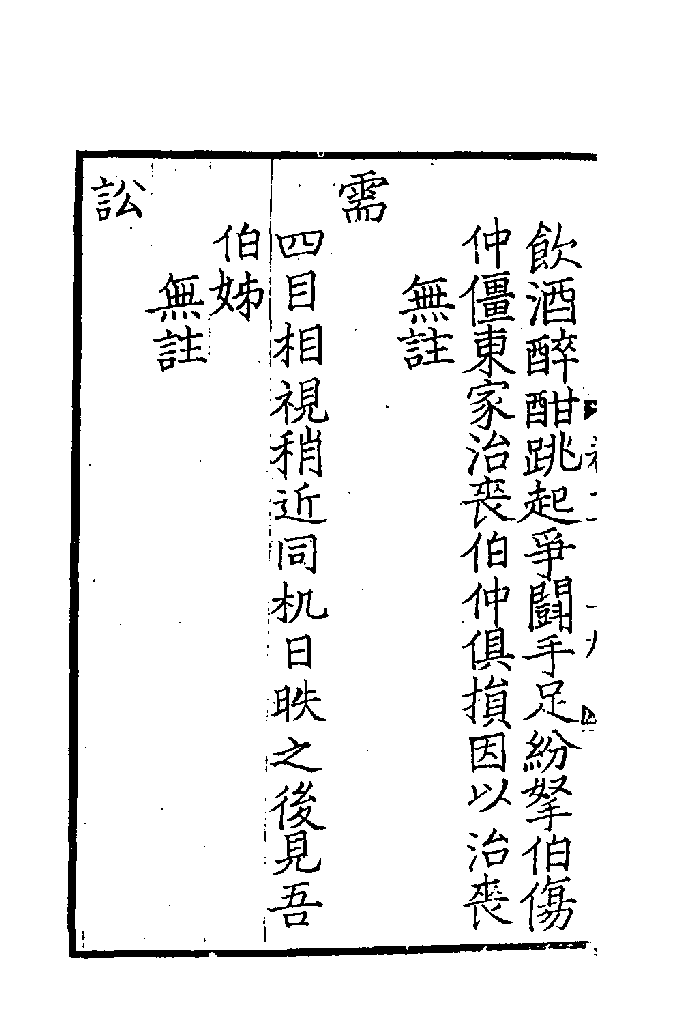 飲酒醉酣跳起爭鬬手足紛拏伯傷
仲僵東家治喪伯仲俱損因以治喪
無註
需
四目相視稍近同机日昳之後見吾
伯姊
無註
訟